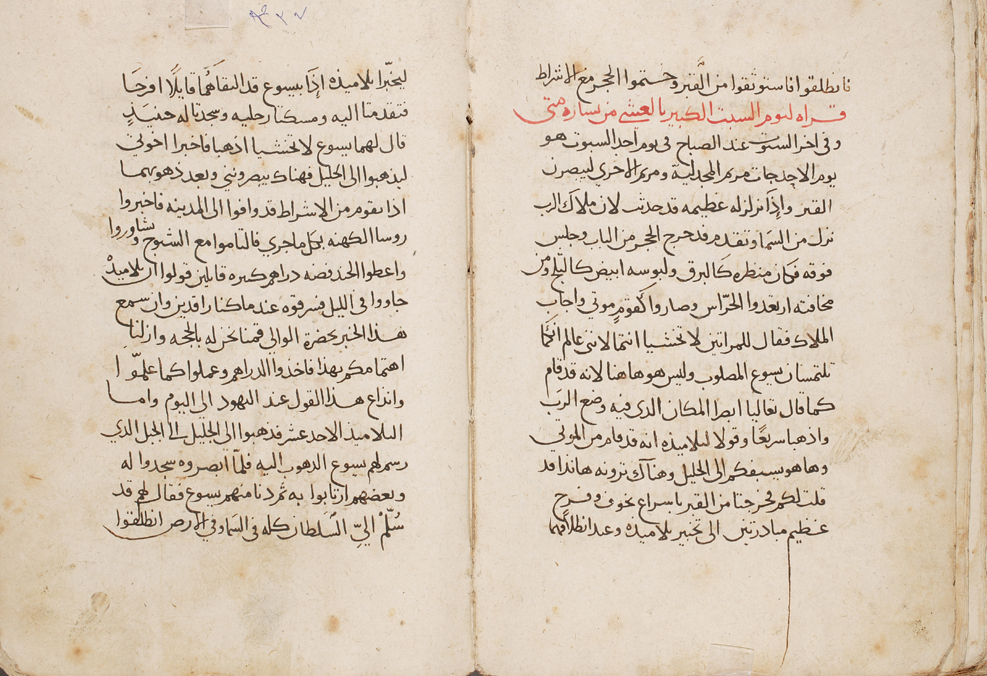 فانطلقوا فاستوثقوا من القبر وختموا الحجر مع الاشراط
قراه ليوم السبت الكبير بالعشي من بشاره متى
وفي اخر السبوت عند الصباح في يوم احد السبوت هو
يوم الاحد جات مريم المجدلية ومريم الاخري ليبصرن
القبر واذا زلزله عظيمه قد حدثت لان ملاك الرب
نزل من السما وتقدم فدحرج الحجر من الباب وجلس
فوقه فكان منظره كالبرق ولبوسه ابيض كالثلج ومن
مخافته ارتعدوا الحراس وصاروا كقوم موتي واجاب
الملاك فقال للمراتين لا تخشيا انتما لانني عالم انكما
تلتمسان يسوع المصلوب وليس هو هاهنا لانه قد قام
كما قال تعاليا ابصرا المكان الدي فيه وضع الرب
واذهبا سريعا وقولا لتلاميذه انه قد قام من الموتي
وها هو يسبقكم الى الجليل وهناك ترونه هاندا قد
قلت لكم فخرجتا من القبر باسراع بخوف وفرح
عظيم مبادرتين الى تخبير تلاميذه وعند انطلاقهما
ليخبرا تلاميذه اذا بيسوع قد التقاهما قايلا افرحا
فتقدمتا اليه ومسكتا رجليه وسجدتا له حينيذ
قال لهما يسوع لا تخشيا اذهبا فاخبرا اخوتي
ليذهبوا الى الجليل فهناك يبصرونني وبعد ذهوبهما
اذا بقوم من الاشراط قد وافوا الى المدينه فاخبروا
روسا الكهنه بكل ما جري فالتاموا مع الشيوخ وتشاوروا
واعطوا الجند فضه دراهم كثيره قايلين قولوا ان تلاميذه
جاووا في الليل فسرقوه عندما كنا راقدين وان سمع
هذا الخبر بحضرة الوالي قمنا نحن له بالحجه وازلنا
اهتمامكم بهذا فاخدوا الدراهم وعملوا كما علموا
وانذاع هذا القول عند اليهود الى اليوم واما
التلاميذ الاحد عشر فدهبوا الى الجليل الى الجبل الدي
رسم لهم يسوع الدهوب اليه فلما ابصروه سجدوا له
وبعضهم ارتابوا به ثم دنا منهم يسوع فقال لهم قد
سلم الي السلطان كله في السما وفي الارض انطلقوا